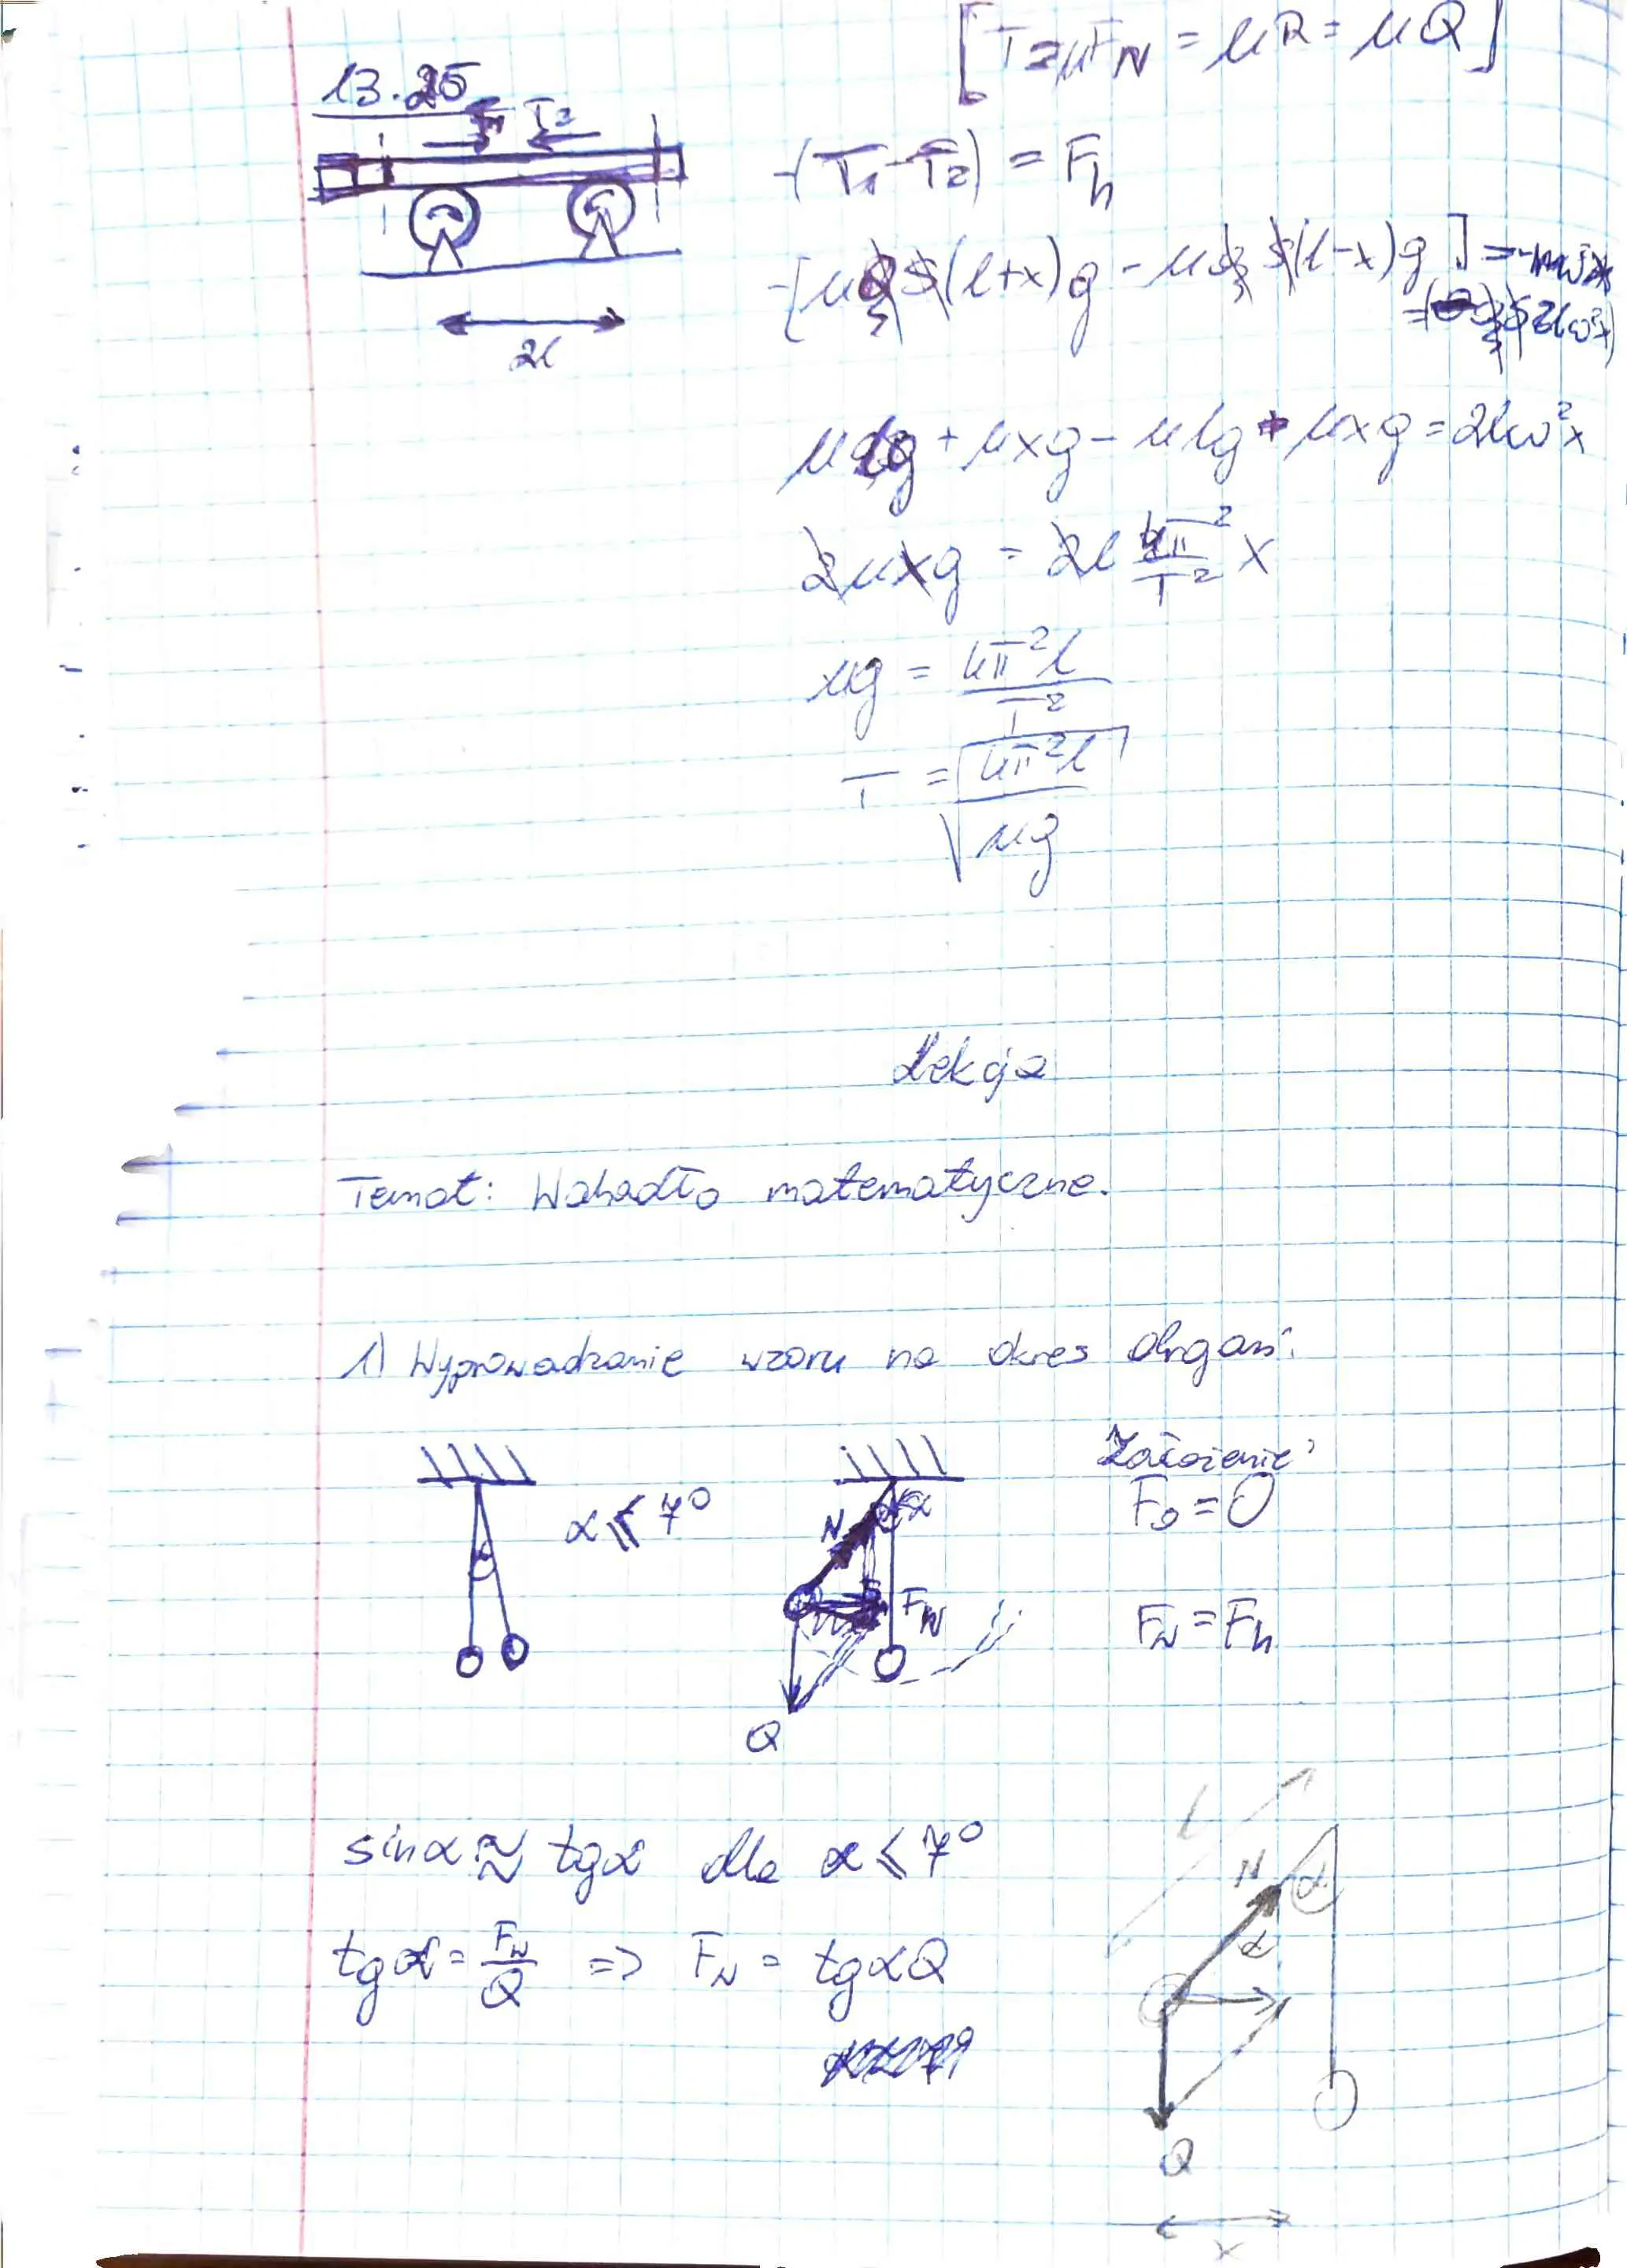 [T=μF_N = μR = μQ]
13.25
T₂
-(T₁-T₂) = F_h
-[μS(l+x)g - μS(l-x)g] = -mω²x
2lω²x
2l
μlg + μxg - μlg + μxg = 2lω²x
2μxg = 2l 4π²/T² x
μg = 4π²l/T²
T = √(4π²l/μg)
Lekcja
Temat: Wahadło matematyczne.
1) Wyprowadzanie wzoru na okres drgań:
α ≤ 7°
N α
F_W
Q
Założenie:
F_o = 0
F_w = F_h
sinα ≈ tgα dla α ≤ 7°
tgα = F_w/Q => F_w = tgαQ
l
N α
α
Q
x